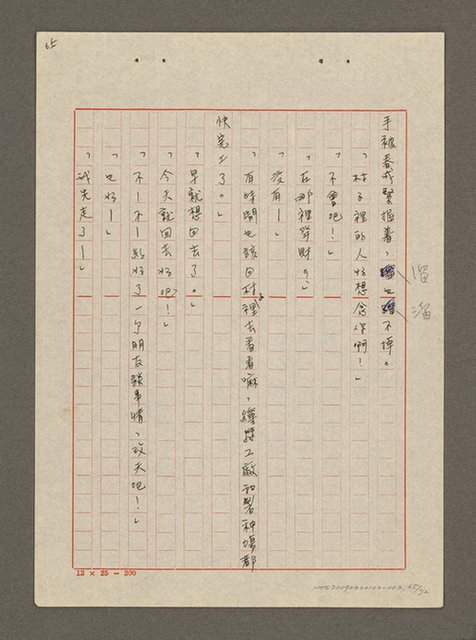 65
手被春成緊握着，溜也溜不掉。
「村子裡的人好想念你啊！」
「不會吧！」
「在哪裡發財？」
「沒有—」
「有時間也該回村裡去看看嘛，繅絲工廠和製種場都
快完工了。」
「早就想回去了。」
「今天就回去好吧？！」
「不—不—約好了一個朋友談事情，改天吧！」
「也好—」
「我先走了—」
溜
溜
12 × 25 = 300